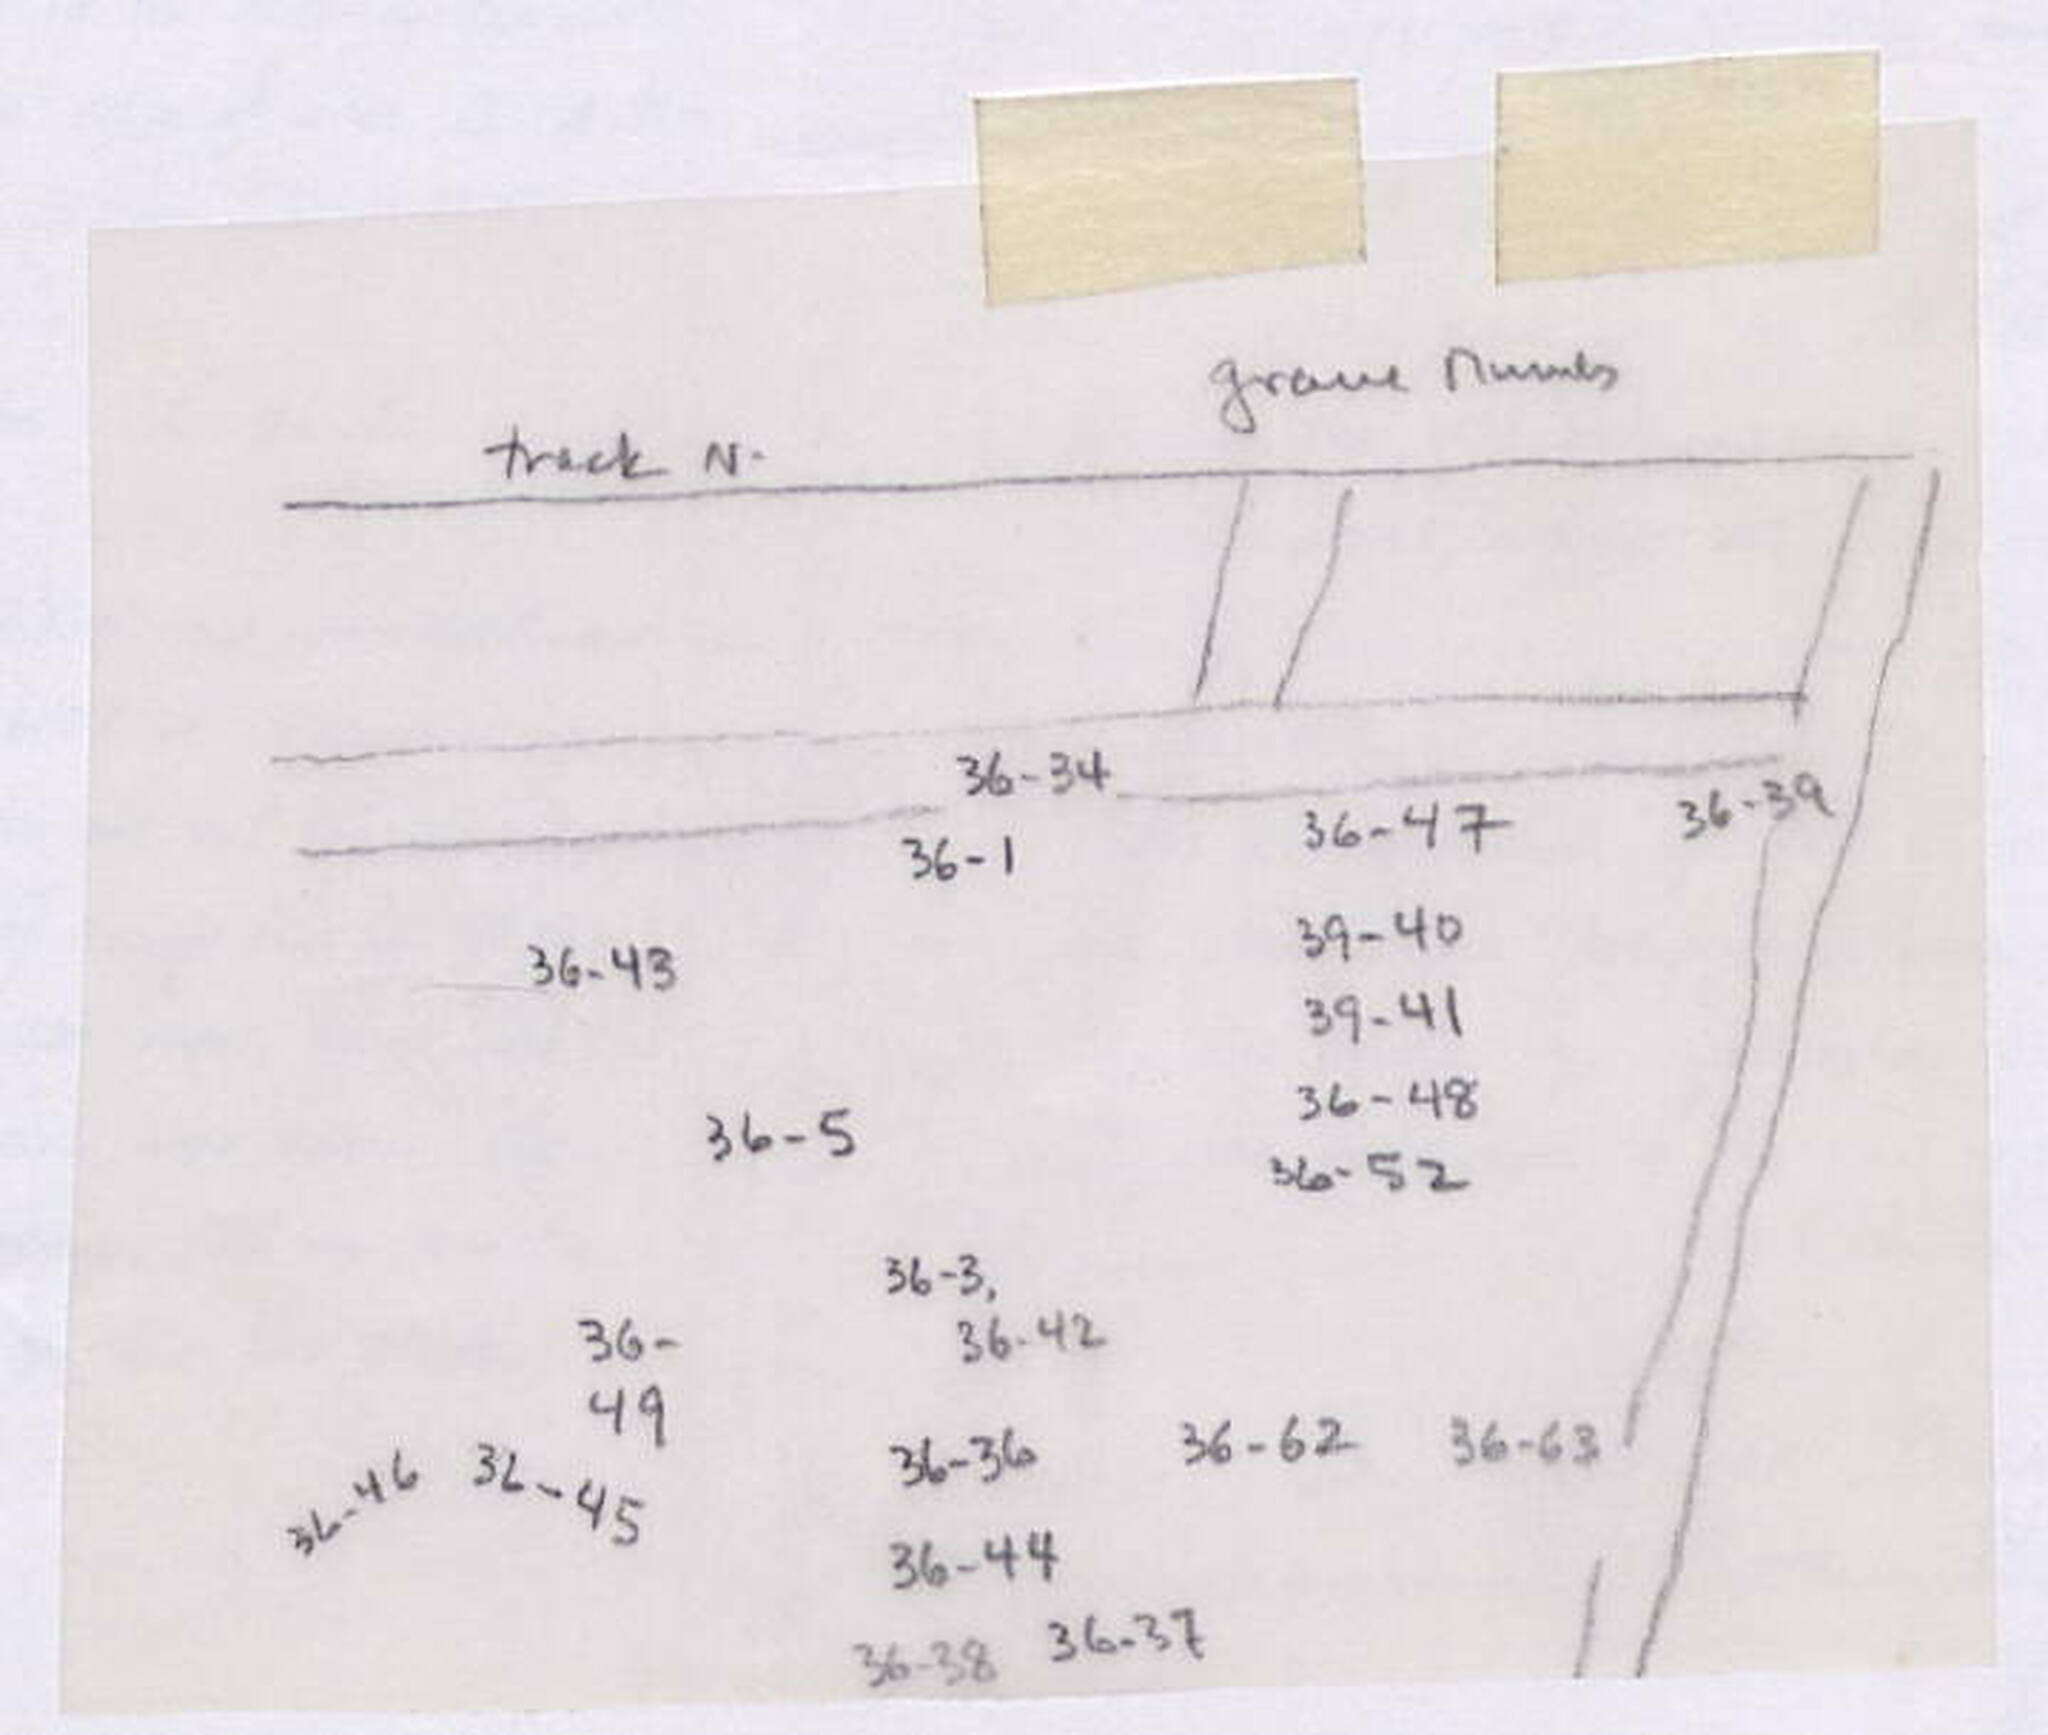 grave Numbs
track N.
36-34
36-47
36-39
36-1
39-40
36-43
39-41
36-48
36-5
36-52
36-3,
36-42
36-
49
36-36
36-62
36-63
36-46
36-45
36-44
36-38
36-37